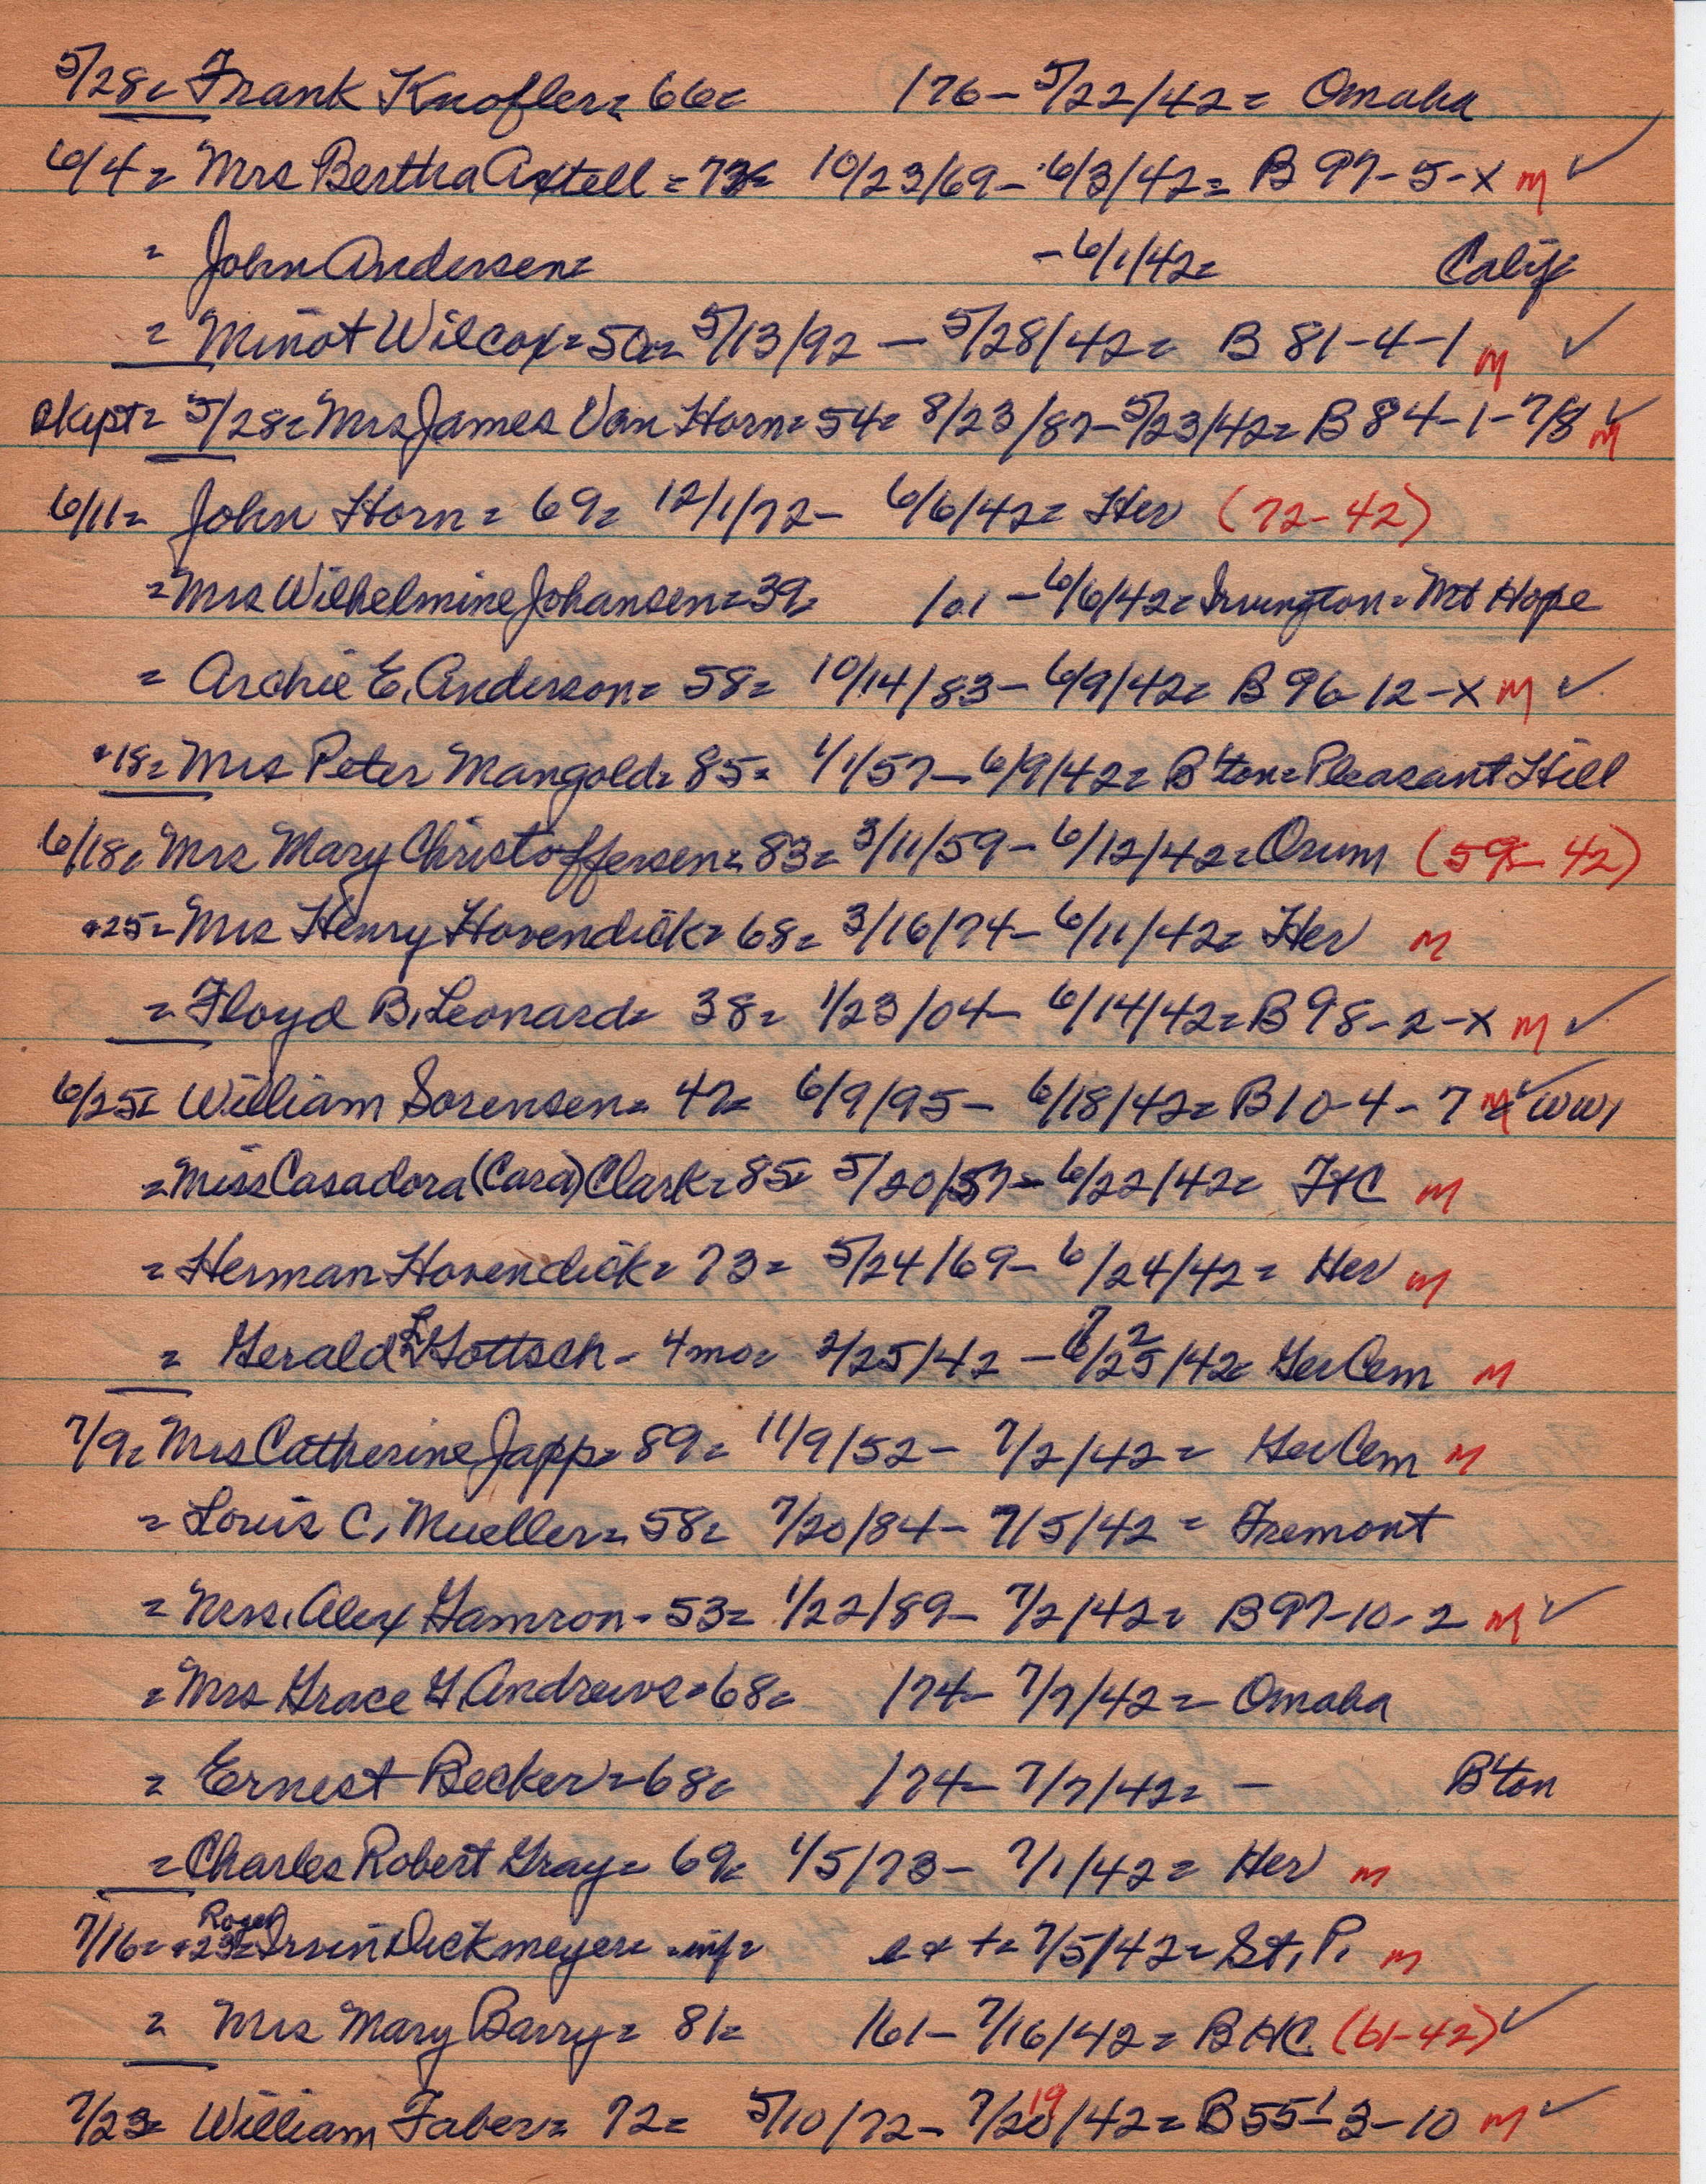 5/28= Frank Knofler= 66= /76- 5/22/42= Omaha
6/4= Mrs Bertha Axtell =72= 10/23/69- 6/3/42= B 97-5-X M ✓
= John Andersen= -6/1/42= Calif
= Minot Wilcox=50= 5/13/92 - 5/28/42= B 81-4-1 M ✓
Skipt= 5/28= Mrs James Van Horn= 54= 8/23/87-5/23/42= B 84-1-7/8 M ✓
6/11= John Horn= 69= 12/1/72- 6/6/42= Her (72-42)
=Mrs Wilhelmine Johansen=39= /01 -6/6/42= Irvington= Mt Hope
= Archie E. Anderson= 58= 10/14/83- 6/9/42= B 96-12-X M ✓
+18= Mrs Peter Mangold= 85= 1/1/57- 6/9/42= B'ton=Pleasant Hill
6/18= Mrs Mary Christoffersen= 83= 3/11/59- 6/12/42=Orum (59-42)
+25=Mrs Henry Hovendick= 68= 3/16/74- 6/11/42= Her M
=Floyd B. Leonard= 38= 1/23/04- 6/14/42=B 98-2-X M ✓
6/25= William Sorensen= 47= 6/9/95- 6/18/42= B10-4-7 M ✓ WW1
=Miss Casadora (Cara) Clark=85= 5/20/57- 6/22/42= FtC M
=Herman Hovendick= 73= 5/24/69- 6/24/42= Her M
= Gerald L Gottsch- 4mo= 2/25/42 - 7/2/42= Ger Cem M
7/9= Mrs Catherine Japp= 89= 11/9/52- 7/2/42= Ger Cem M
= Louis C. Mueller= 58= 7/20/84- 7/5/42 = Fremont
=Mrs. Alex Gamron- 53= 1/22/89- 7/2/42= B 97-10-2 M ✓
=Mrs Grace G. Andrews=68= /74- 7/7/42= Omaha
= Ernest Becker=68= /74- 7/7/42= - B'ton
=Charles Robert Gray= 69= 1/5/73- 7/1/42= Her M
7/16= +23= Roger Irvin Dickmeyer= inf= 7/5/42= St. P. M
= Mrs Mary Barry= 81= /61- 7/16/42= BHC (61-42) ✓
7/23= William Faber= 72= 5/10/72- 7/19/42= B 55-3-10 M ✓